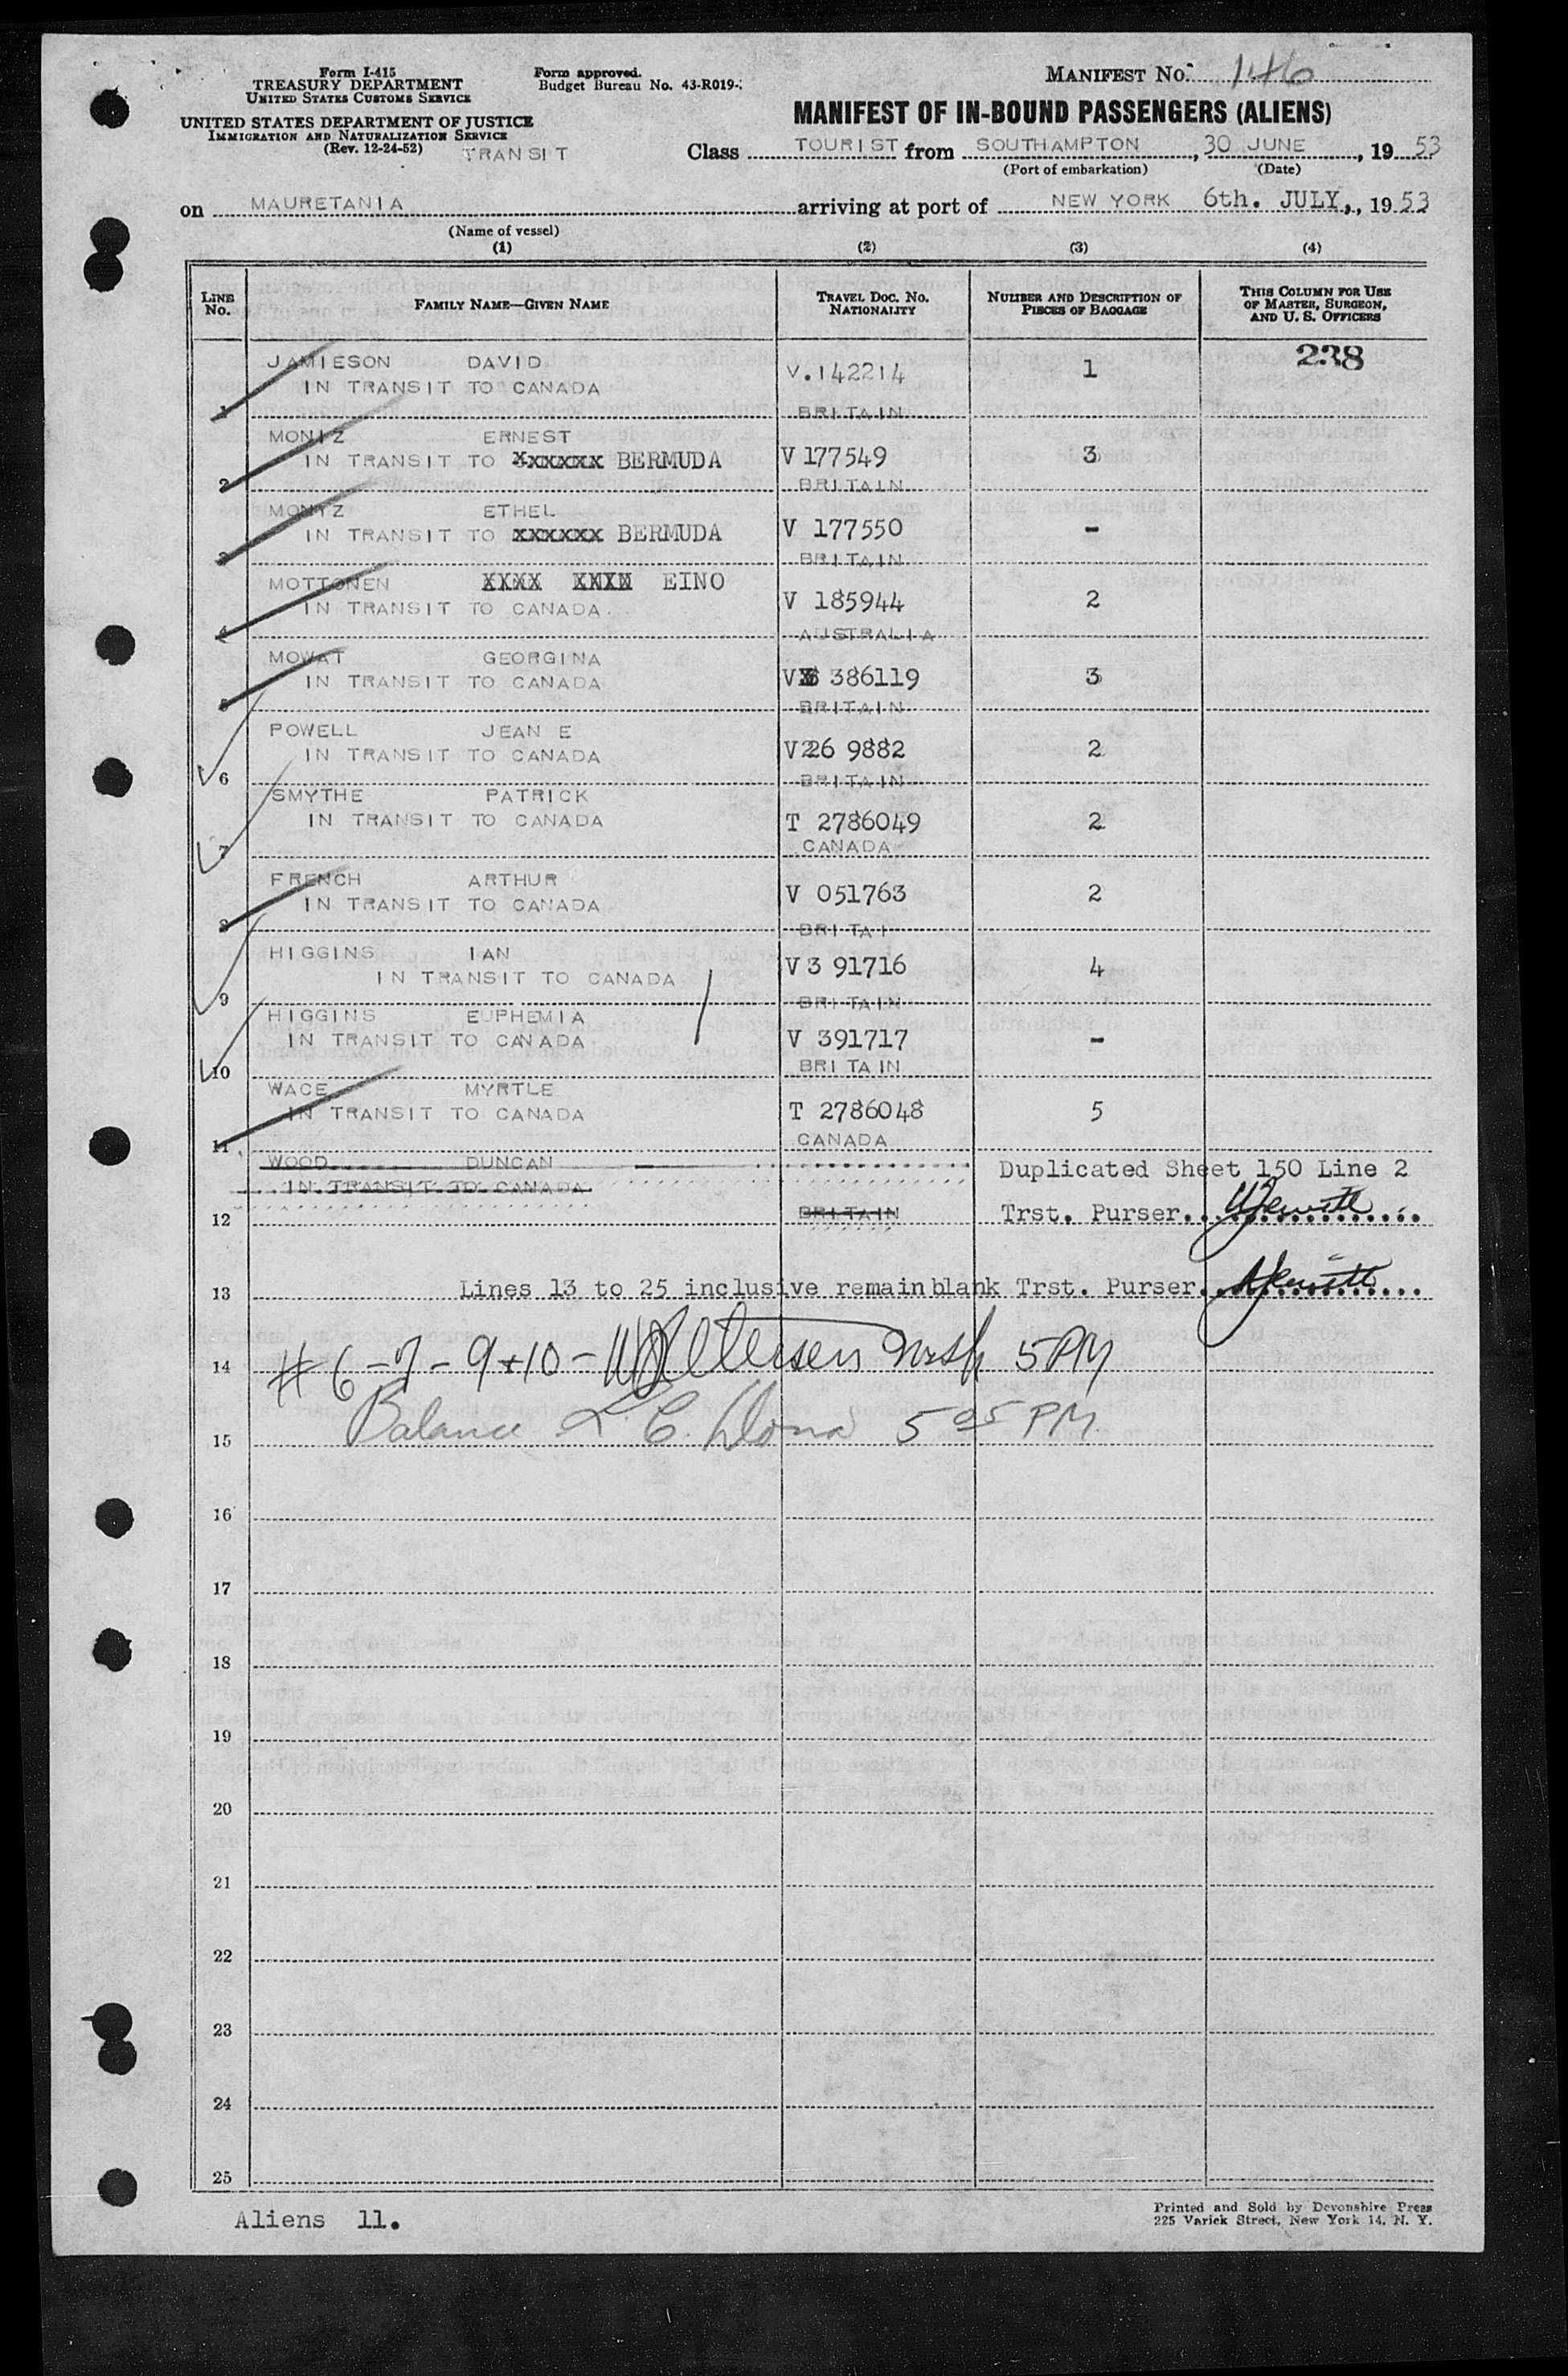 Form I-415
TREASURY DEPARTMENT
UNITED STATES CUSTOMS SERVICE
UNITED STATES DEPARTMENT OF JUSTICE
IMMIGRATION AND NATURALIZATION SERVICE
(Rev. 12-24-52) TRANSIT
Form approved.
Budget Bureau No. 43-R019-
MANIFEST No. 146
MANIFEST OF IN-BOUND PASSENGERS (ALIENS)
Class TOURIST from SOUTHAMPTON, 30 JUNE, 1953
(Port of embarkation) (Date)
on MAURETANIA arriving at port of NEW YORK 6th. JULY,, 1953
(Name of vessel)
(1) (2) (3) (4)
LINE No. FAMILY NAME—GIVEN NAME TRAVEL DOC. NO. NATIONALITY NUMBER AND DESCRIPTION OF PIECES OF BAGGAGE THIS COLUMN FOR USE OF MASTER, SURGEON, AND U. S. OFFICERS
JAMIESON DAVID 238
IN TRANSIT TO CANADA V.142214 1
1 BRITAIN
MONIZ ERNEST
IN TRANSIT TO XXXXXXX BERMUDA V 177549 3
2 BRITAIN
MONIZ ETHEL
IN TRANSIT TO XXXXXX BERMUDA V 177550 -
3 BRITAIN
MOTTONEN XXXX XXXX EINO
IN TRANSIT TO CANADA. V 185944 2
4 AUSTRALIA
MOWAT GEORGINA
IN TRANSIT TO CANADA V 386119 3
5 BRITAIN
POWELL JEAN E
IN TRANSIT TO CANADA V26 9882 2
6 BRITAIN
SMYTHE PATRICK
IN TRANSIT TO CANADA T 2786049 2
7 CANADA
FRENCH ARTHUR
IN TRANSIT TO CANADA V 051763 2
8 BRITAI
HIGGINS IAN
IN TRANSIT TO CANADA V3 91716 4
9 BRITAIN
HIGGINS EUPHEMIA
IN TRANSIT TO CANADA V 391717 -
10 BRITAIN
WACE MYRTLE
IN TRANSIT TO CANADA T 2786048 5
11 CANADA
WOOD DUNCAN Duplicated Sheet 150 Line 2
IN TRANSIT TO CANADA
12 BRITAIN Trst. Purser
13 Lines 13 to 25 inclusive remain blank Trst. Purser
14 #6-7-9+10- 5PM
15 Balance L. C. 5 05 PM
16
17
18
19
20
21
22
23
24
25
Aliens 11.
Printed and Sold by Devonshire Press
225 Varick Street, New York 14, N. Y.